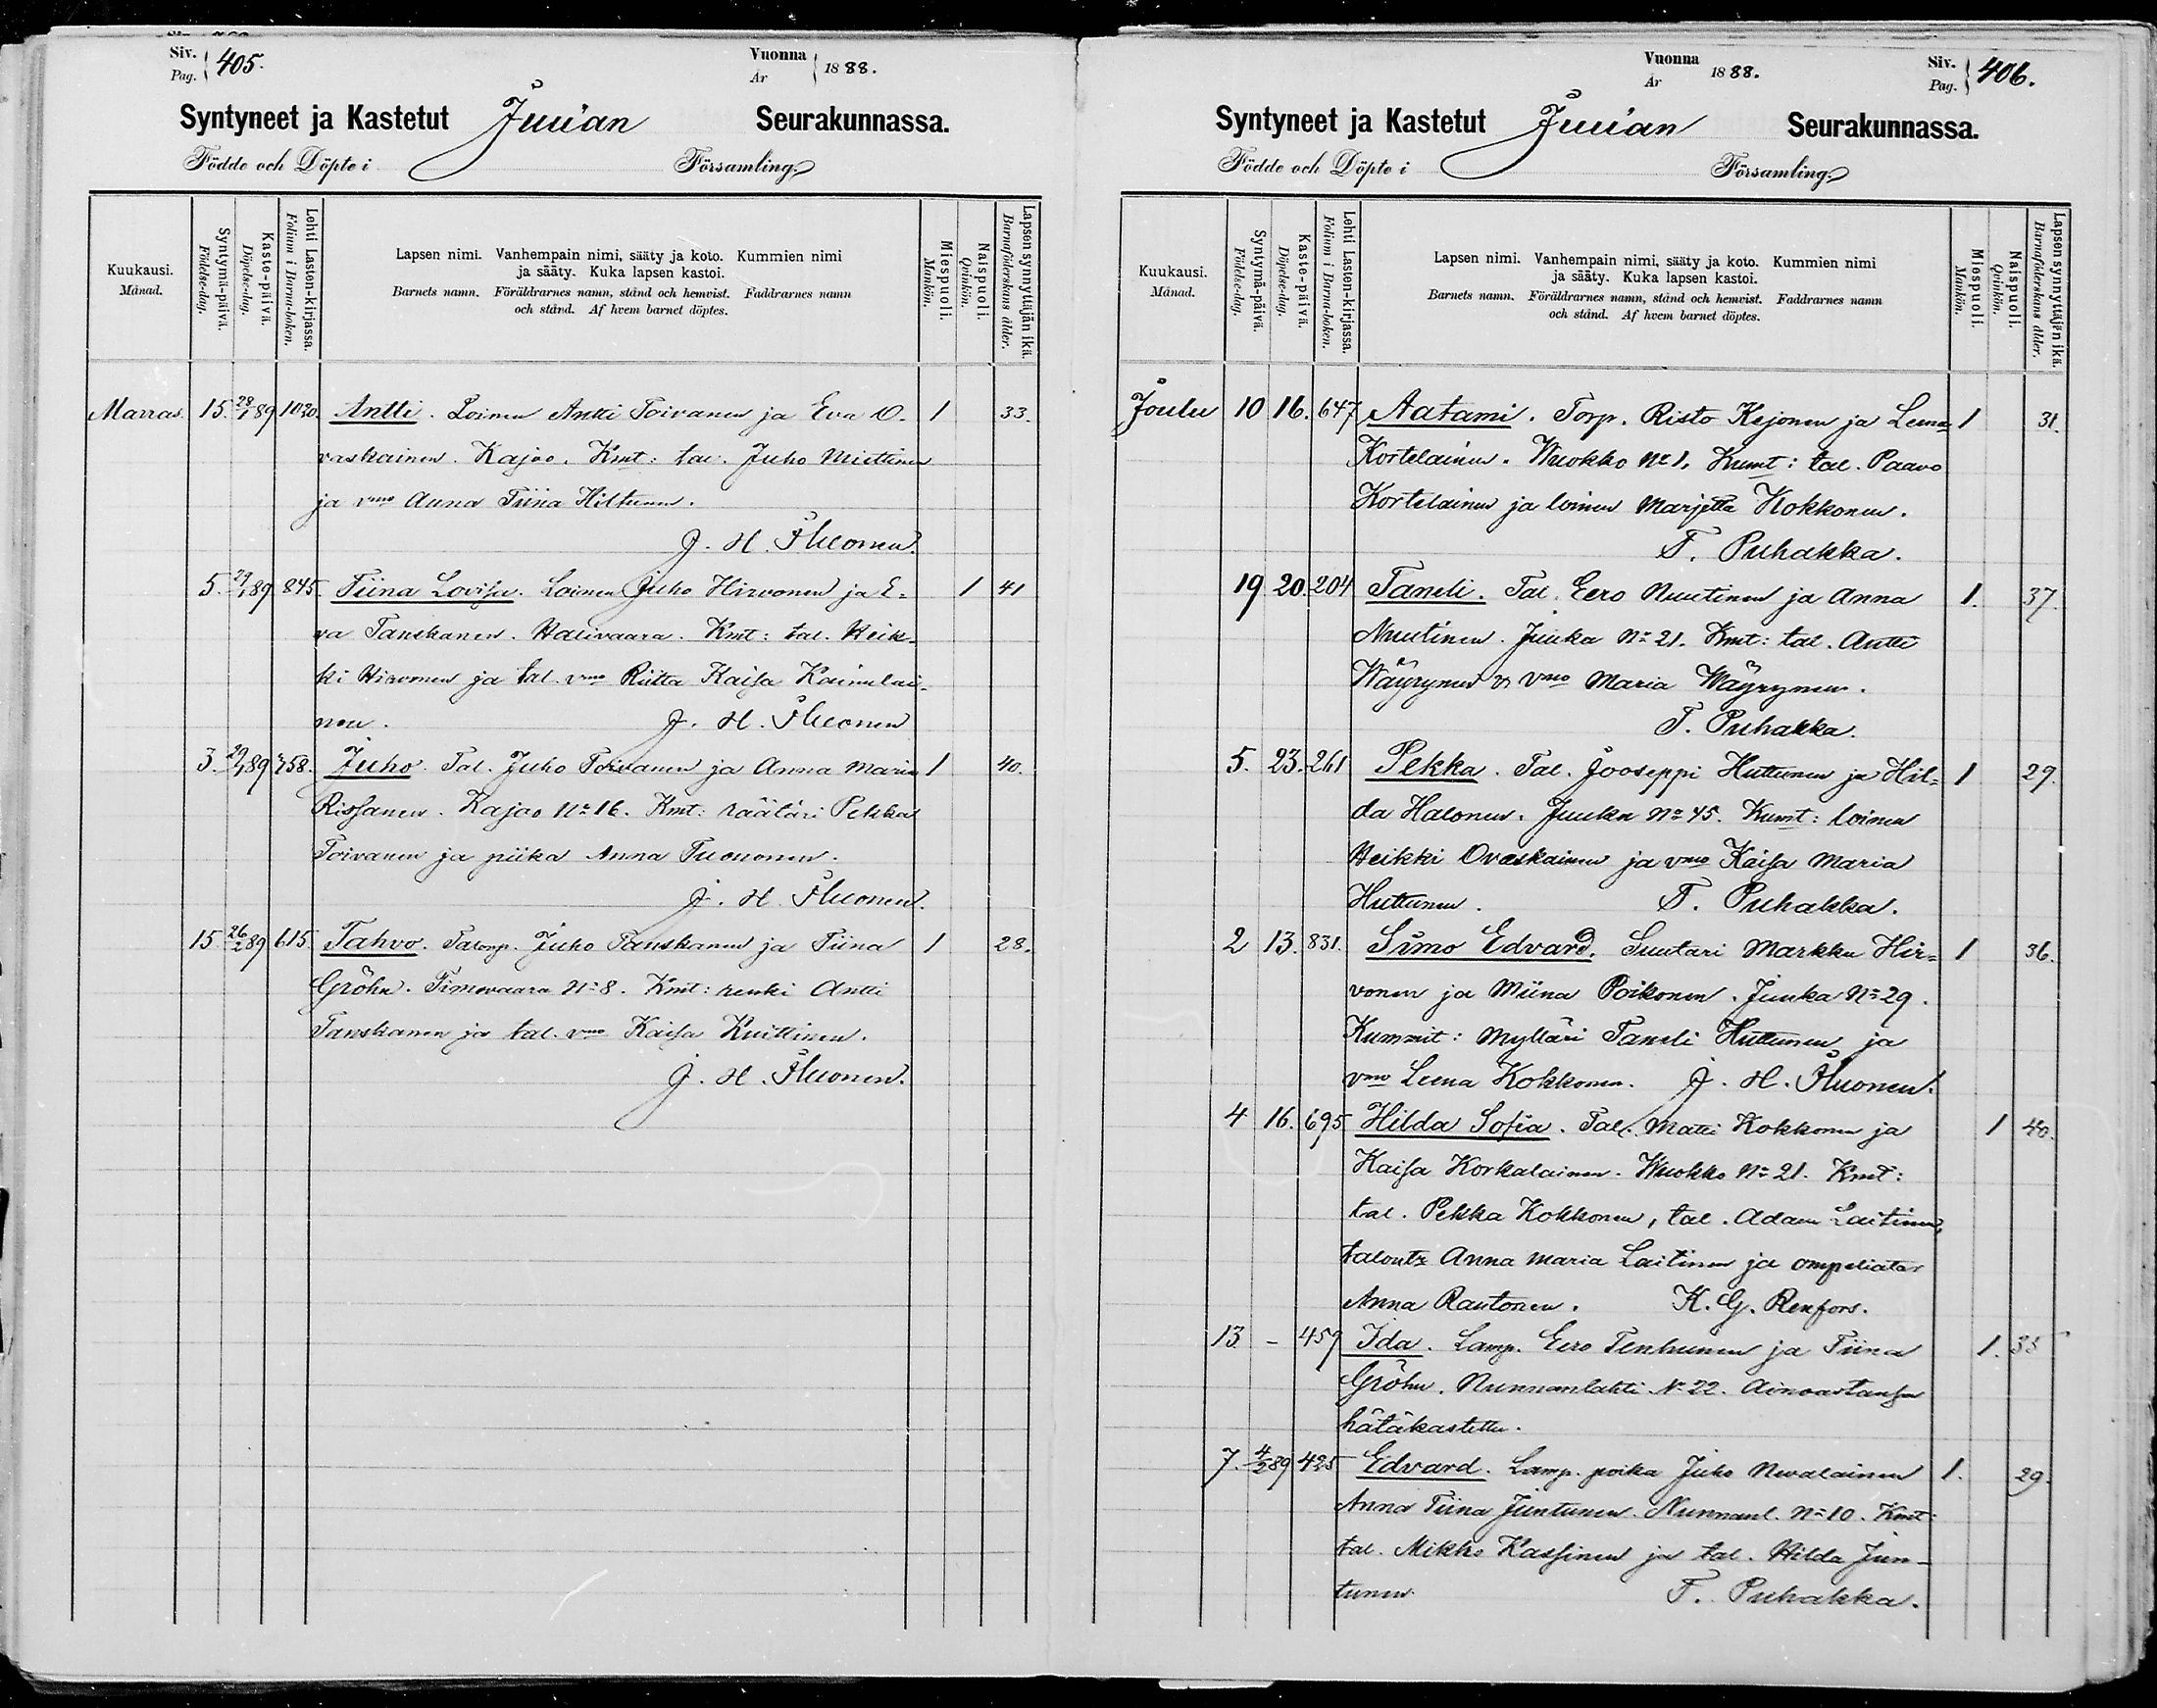 Siv. Pag. 405. Vuonna År 1888.
Syntyneet ja Kastetut Juuan Seurakunnassa.
Födde och Döpte i Församling.
Kuukausi. Månad.
Syntymä-päivä. Födelse-dag.
Kaste-päivä. Döpelse-dag.
Lehti Lasten-kirjassa. Folium i Barna-boken.
Lapsen nimi. Vanhempain nimi, sääty ja koto. Kummien nimi
ja sääty. Kuka lapsen kastoi.
Barnets namn. Föräldrarnes namn, stånd och hemvist. Faddrarnes namn
och stånd. Af hvem barnet döptes.
Miespuoli. Mankön.
Naispuoli. Qvinkön.
Lapsen synnyttäjän ikä. Barnaföderskans ålder.
Marras. 15. 28/1 89 1020. Antti. Loinen Antti Toivanen ja Eva O- 1 33.
vaskainen. Kajoo. Kmt: tal. Juho Miettinen
ja vmo Anna Tiina Hiltunen.
J. H. Ihuonen.
5. 29/1 89 845. Tiina Lovisa. Loinen Juho Hirvonen ja E- 1 41
va Tanskanen. Halivaara. Kmt: tal. Heik-
ki Hirvonen ja tal. vmo Riitta Kaisa Kainulai-
nen. J. H. Ihuonen
3. 29/1 89 758. Juho. Tal. Juho Toivanen ja Anna Maria 1 40.
Rissanen. Kajoo No 16. Kmt: räätäri Pekka
Toivanen ja piika Anna Tuononen.
J. H. Ihuonen.
15. 26/2 89 615. Tahvo. Talonp. Juho Tanskanen ja Tiina 1 28.
Gröhn. Timovaara No 8. Kmt: renki Antti
Tanskanen ja tal. vmo Kaisa Kuittinen.
J. H. Ihuonen.
Vuonna År 1888. Siv. Pag. 406.
Syntyneet ja Kastetut Juuan Seurakunnassa.
Födde och Döpte i Församling.
Kuukausi. Månad.
Syntymä-päivä. Födelse-dag.
Kaste-päivä. Döpelse-dag.
Lehti Lasten-kirjassa. Folium i Barna-boken.
Lapsen nimi. Vanhempain nimi, sääty ja koto. Kummien nimi
ja sääty. Kuka lapsen kastoi.
Barnets namn. Föräldrarnes namn, stånd och hemvist. Faddrarnes namn
och stånd. Af hvem barnet döptes.
Miespuoli. Mankön.
Naispuoli. Qvinkön.
Lapsen synnyttäjän ikä. Barnaföderskans ålder.
Joulu 10 16. 647 Aatami. Torp. Risto Kejonen ja Leena 1 31.
Kortelainen. Wuokko No 1. Kumt: tal. Paavo
Kortelainen ja loinen Marjetta Kokkonen.
T. Puhakka.
19 20. 204 Taneli. Tal. Eero Nuutinen ja Anna 1. 37.
Nuutinen. Juuka No 21. Kmt: tal. Antti
Wäyrynen vmo Maria Wäyrynen.
T. Puhakka.
5. 23. 261 Pekka. Tal. Jooseppi Huttunen ja Hil= 1 29.
da Halonen. Juuka No 45. Kumt: loinen
Heikki Ovaskainen ja vmo Kaisa Maria
Huttunen. T. Puhakka.
2 13. 831. Simo Edvard. Suutari Markku Hir= 1 36.
vonen ja Miina Poikonen. Juuka No 29.
Kummit: Mylläri Taneli Huttunen ja
vmo Leena Kokkonen. J. H. Ihuonen.
4 16. 695 Hilda Sofia. Tal. Matti Kokkonen ja 1 40.
Kaisa Korkalainen. Wuokko No 21. Kmt:
tal. Pekka Kokkonen, tal. Adam Laitinen,
talontr Anna Maria Laitinen ja ompeliatar
Anna Rautonen. K. G. Renfors.
13 - 459 Ida. Lamp. Eero Tenhunen ja Tiina 1. 35
Gröhn. Nunnanlahti No 22. Ainoastansa
hätäkastettu.
7. 4/2 89 425 Edvard. Lamp. poika Juho Nevalainen 1. 29.
Anna Tiina Juntunen. Nunnanl. No 10. Kmt:
tal. Mikko Kassinen ja tal. Hilda Jun-
tunen T. Puhakka.